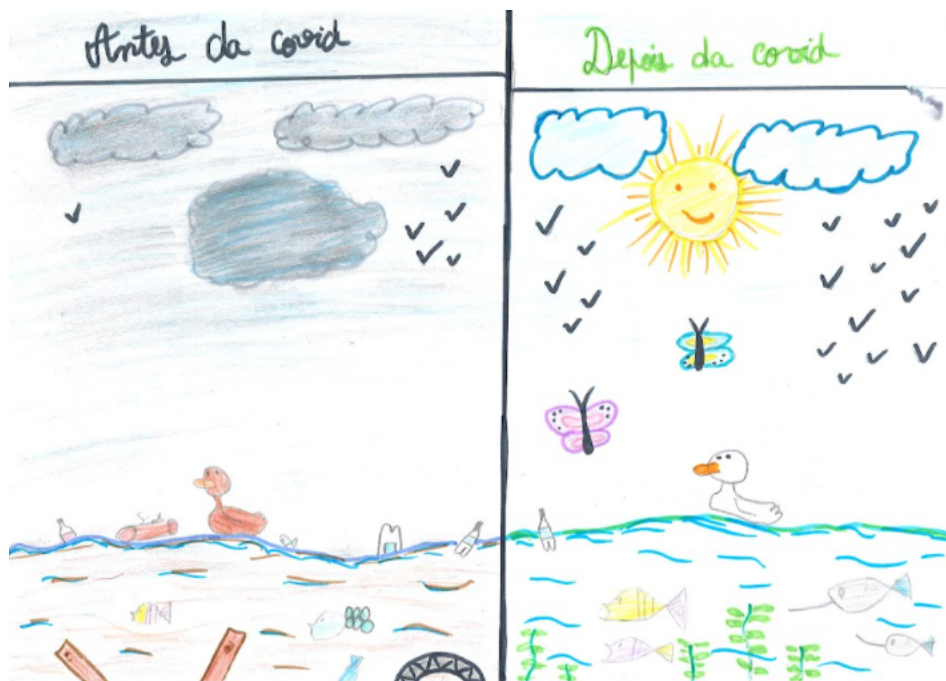 Antes da covid
Depois da covid